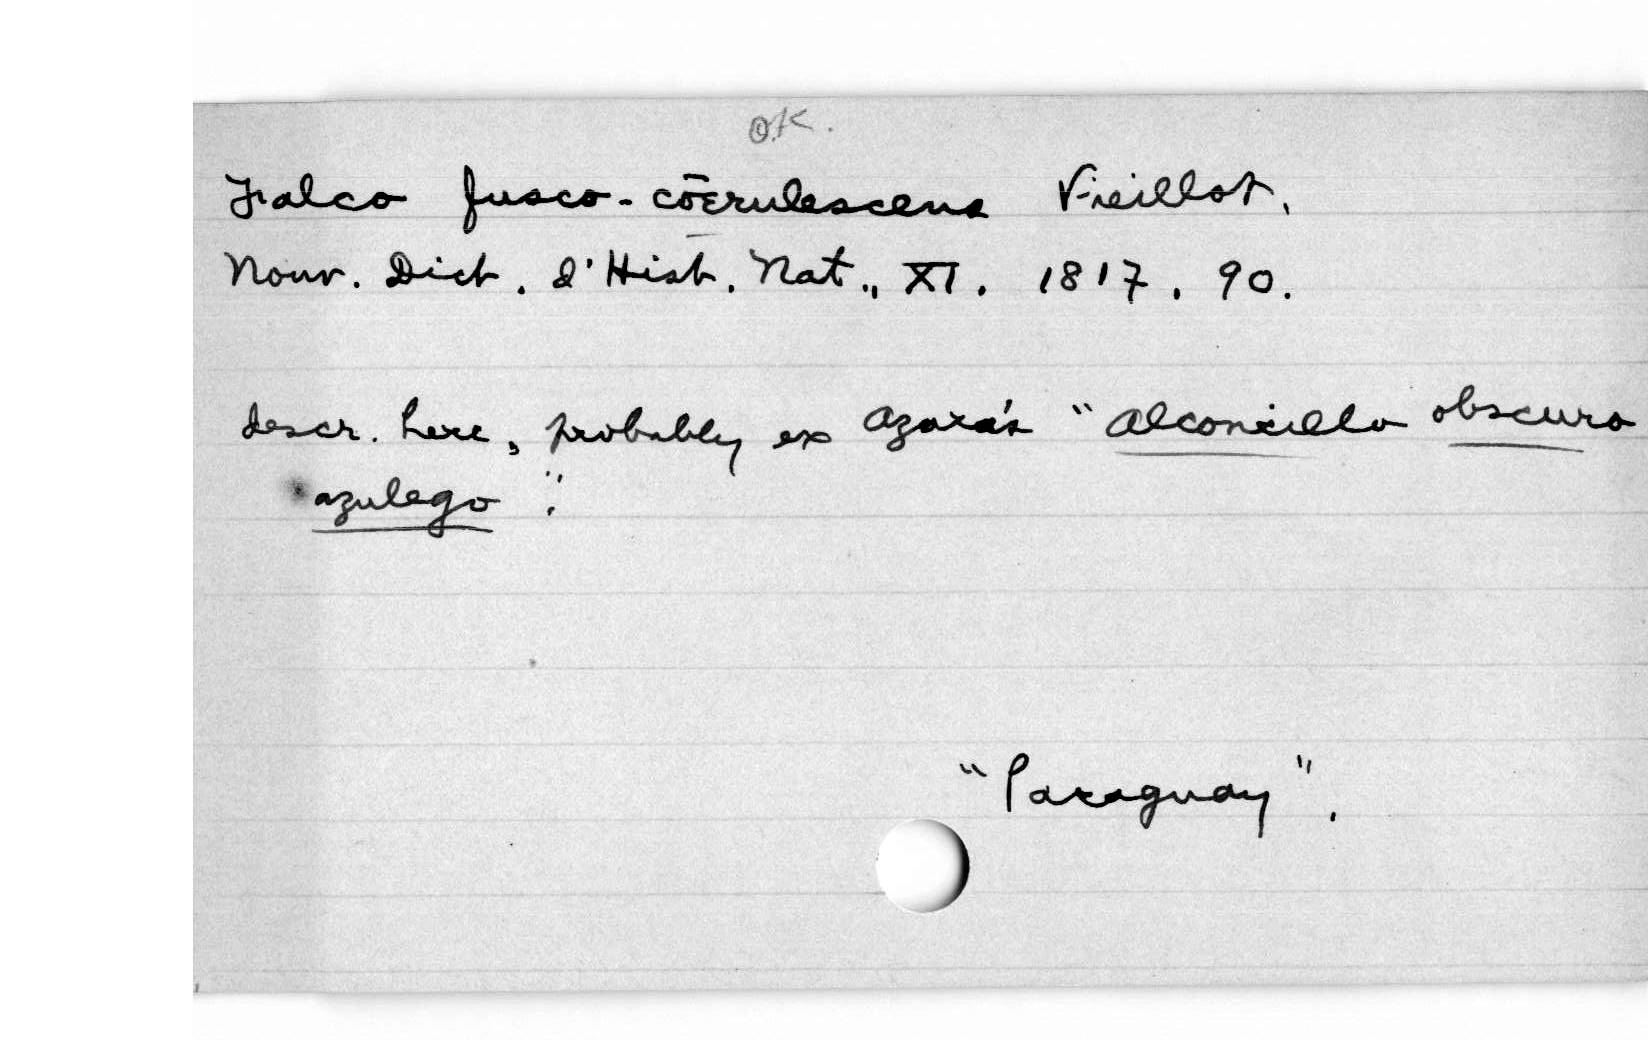 O.K.
Falco fusco-cœrulescens Vieillot.
Nouv. Dict. d'Hist. Nat., XI. 1817. 90.
descr. here, probably ex Azara's "Alconcillo obscuro
azulego".
"Paraguay".